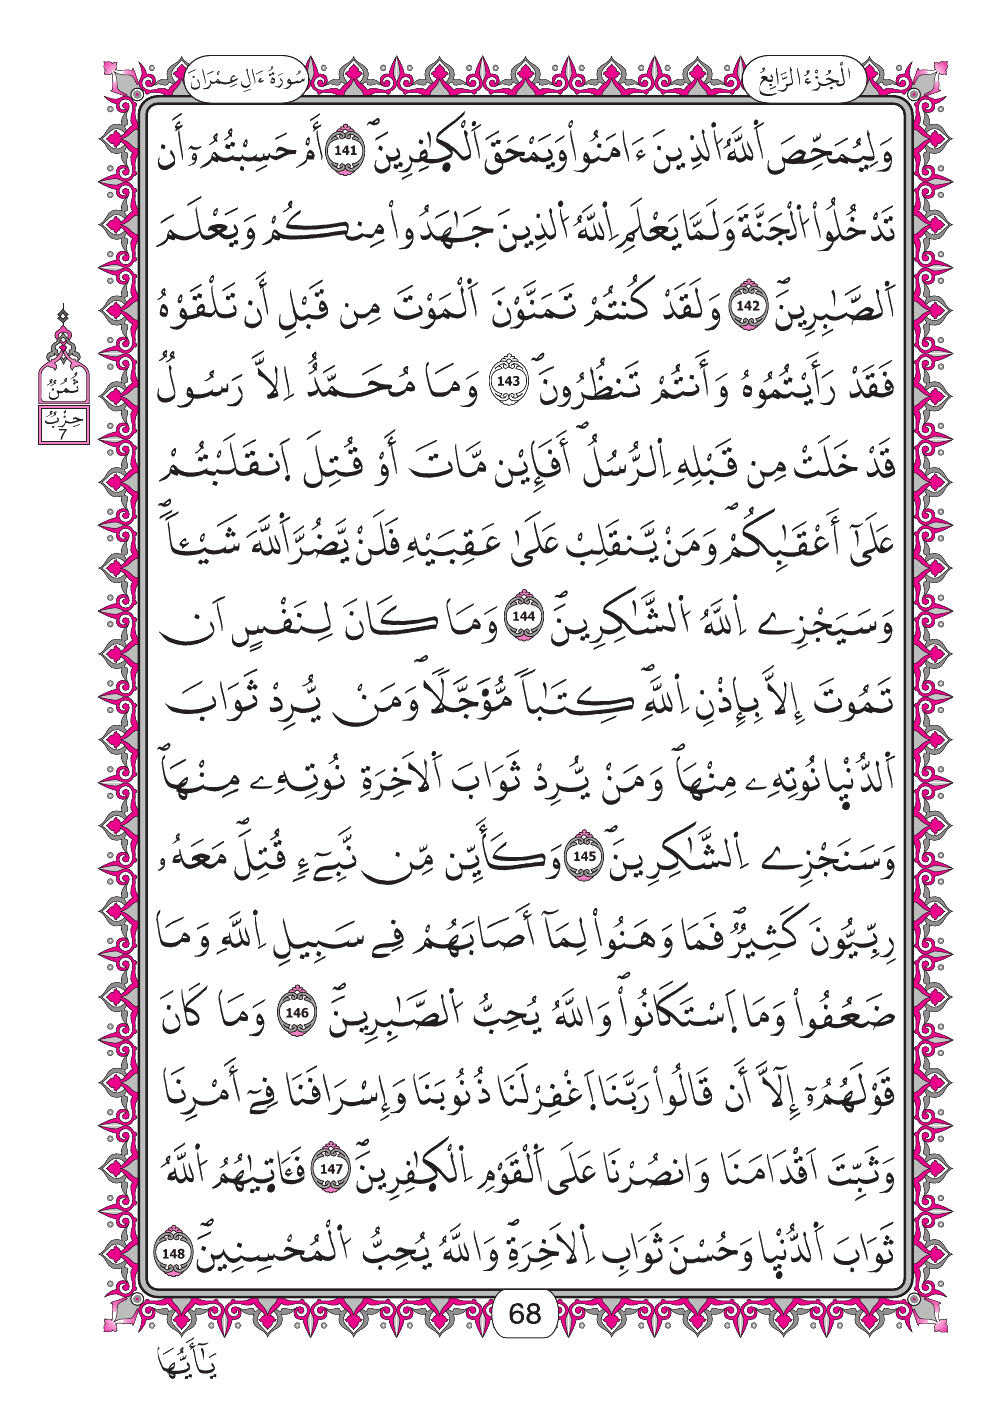 اَلْجُزْءُ الرَّابِعُ
سُورَةُ ءَالِ عِمْرَانَ
وَلِيُمَحِّصَ اَ۬للَّهُ اُ۬لذِينَ ءَامَنُواْ وَيَمْحَقَ اَ۬لْكٰ۪فِرِينَۖ 141 أَمْ حَسِبْتُمُۥٓ أَن
تَدْخُلُواْ اُ۬لْجَنَّةَ وَلَمَّا يَعْلَمِ اِ۬للَّهُ اُ۬لذِينَ جَٰهَدُواْ مِنكُمْ وَيَعْلَمَ
اَ۬لصَّٰبِرِينَۖ 142 وَلَقَدْ كُنتُمْ تَمَنَّوْنَ اَ۬لْمَوْتَ مِن قَبْلِ أَن تَلْقَوْهُ
فَقَدْ رَأَيْتُمُوهُ وَأَنتُمْ تَنظُرُونَۖ 143 وَمَا مُحَمَّدٌ اِلَّا رَسُولٌ
قَدْ خَلَتْ مِن قَبْلِهِ اِ۬لرُّسُلُۖ أَفَإِيْن مَّاتَ أَوْ قُتِلَ اَ۪نقَلَبْتُمْ
عَلَىٰٓ أَعْقَٰبِكُمْۖ وَمَنْ يَّنقَلِبْ عَلَىٰ عَقِبَيْهِ فَلَنْ يَّضُرَّ اَ۬للَّهَ شَيْـٔاٗۖ
وَسَيَجْزِے اِ۬للَّهُ اُ۬لشَّٰكِرِينَۖ 144 وَمَا كَانَ لِنَفْسٍ اَن
تَمُوتَ إِلَّا بِإِذْنِ اِ۬للَّهِۖ كِتَٰباٗ مُّؤَجَّلاٗۖ وَمَنْ يُّرِدْ ثَوَابَ
اَ۬لدُّنْي۪ا نُوتِهِۦ مِنْهَاۖ وَمَنْ يُّرِدْ ثَوَابَ اَ۬لَاخِرَةِ نُوتِهِۦ مِنْهَاۖ
وَسَنَجْزِے اِ۬لشَّٰكِرِينَۖ 145 وَكَأَيِّن مِّن نَّبِےٓءٖ قُتِلَۖ مَعَهُۥ
رِبِّيُّونَ كَثِيرٞۖ فَمَا وَهَنُواْ لِمَآ أَصَابَهُمْ فِے سَبِيلِ اِ۬للَّهِ وَمَا
ضَعُفُواْ وَمَا اَ۪سْتَكَانُواْۖ وَاللَّهُ يُحِبُّ اُ۬لصَّٰبِرِينَۖ 146 وَمَا كَانَ
قَوْلَهُمُۥٓ إِلَّآ أَن قَالُواْ رَبَّنَا اَ۪غْفِرْ لَنَا ذُنُوبَنَا وَإِسْرَافَنَا فِےٓ أَمْرِنَا
وَثَبِّتَ اَقْدَامَنَا وَانصُرْنَا عَلَى اَ۬لْقَوْمِ اِ۬لْكٰ۪فِرِينَۖ 147 فَـَٔات۪يٰهُمُ اُ۬للَّهُ
ثَوَابَ اَ۬لدُّنْي۪ا وَحُسْنَ ثَوَابِ اِ۬لَاخِرَةِۖ وَاللَّهُ يُحِبُّ اُ۬لْمُحْسِنِينَۖ 148
ثُمُنٌ
حِزْبٌ
7
68
يَٰٓأَيُّهَا